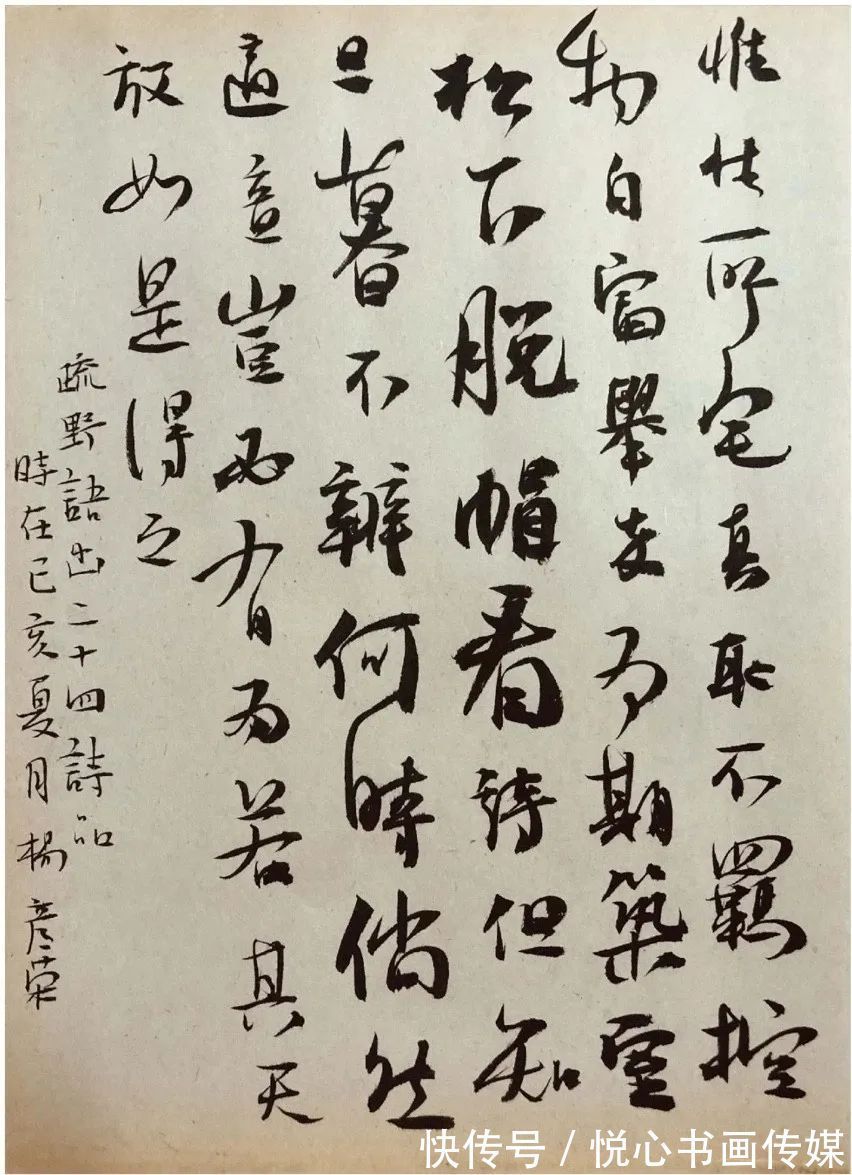 惟性所宅真取不羈控
物自富與率為期築室
松下脫帽看詩但知
旦暮不辨何時倘然
適意豈必有為若其天
放如是得之
疏野語出二十四詩品
時在己亥夏月楊彥榮
快传号 / 悦心书画传媒